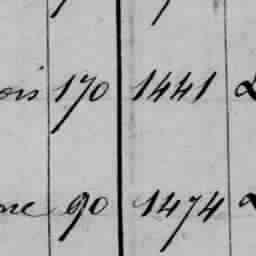 ois 170 1441
ne 90 1474